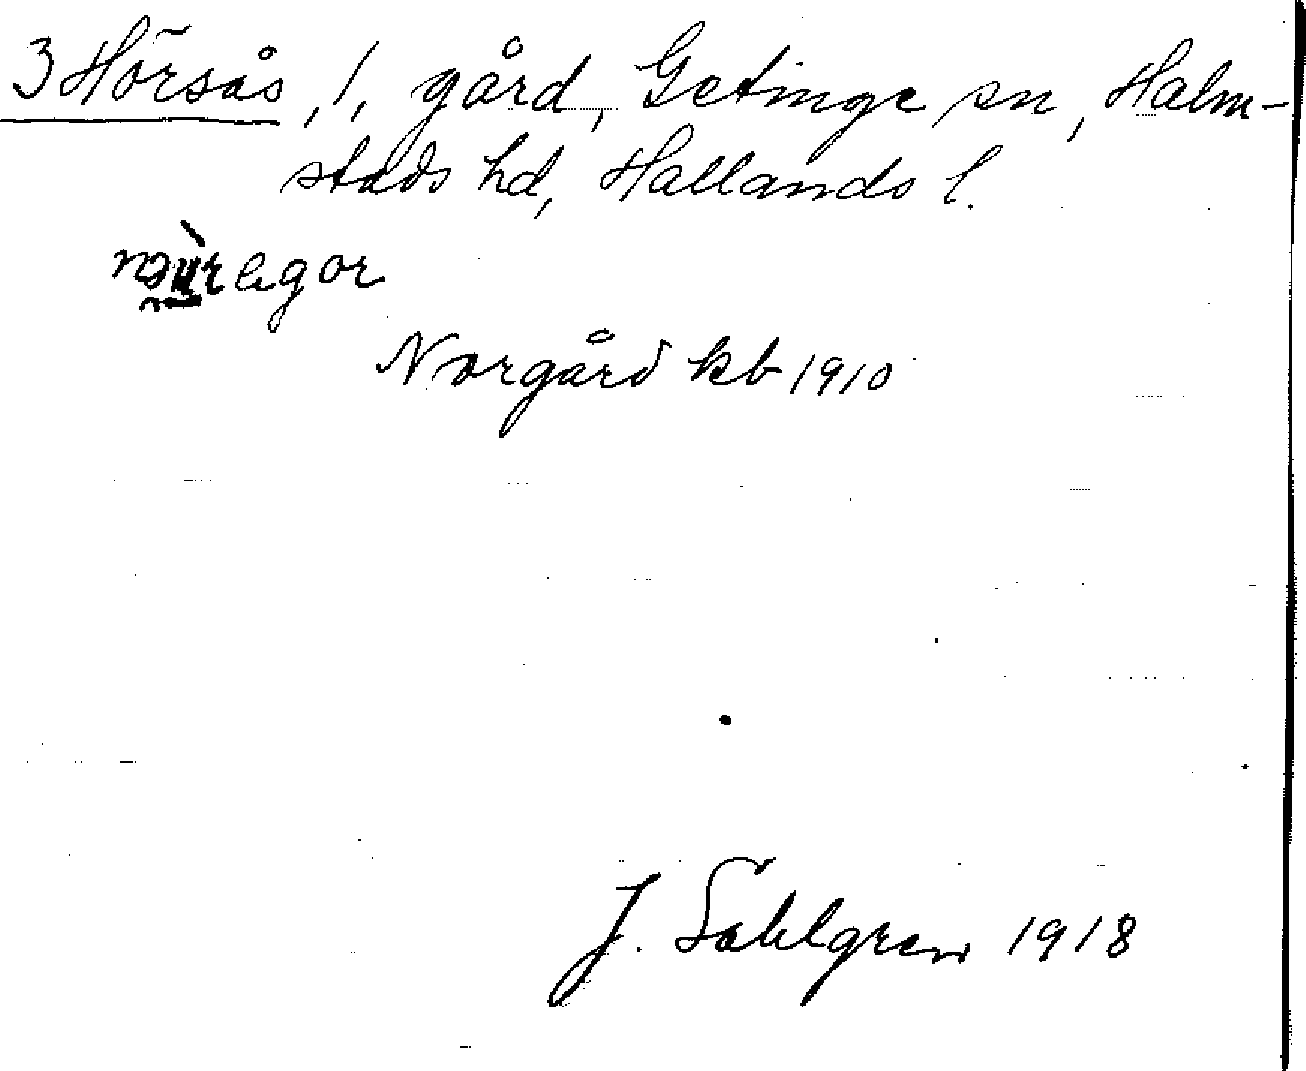 3 Hörsås, 1, gård, Getinge sn, Halm-
stads hd, Hallands l.
Norgård kb 1910
J. Sahlgren 1918